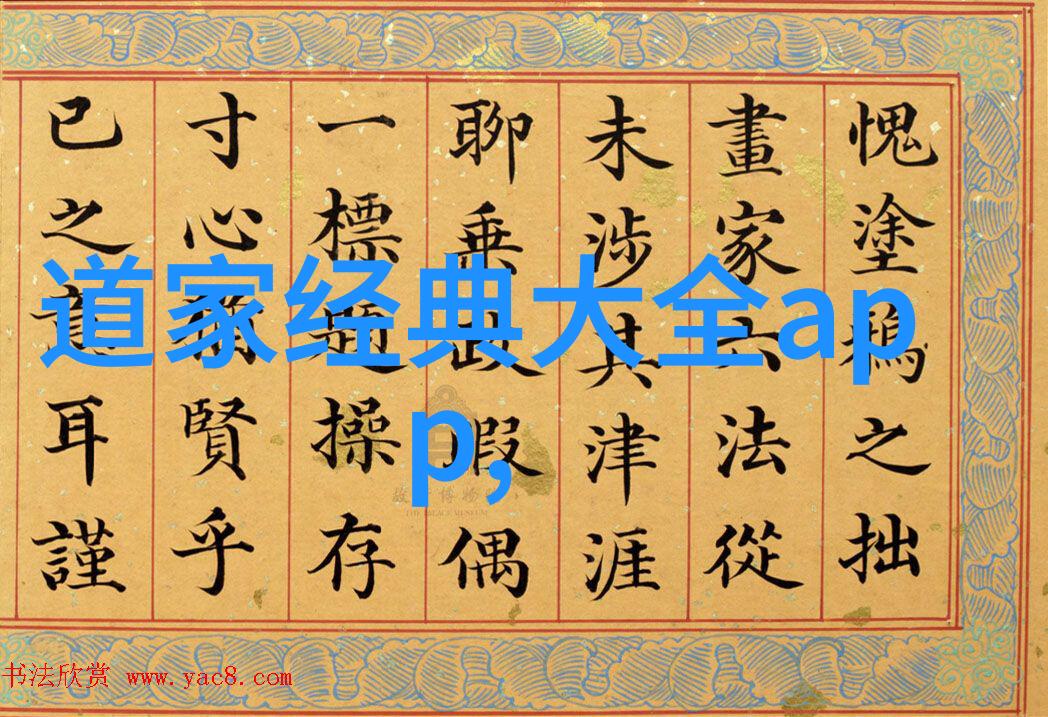 道家经典大全ap
p,
愧塗之拙
畫家六法從
未涉其津涯
聊乘政暇偶
一標題操存
寸心賢乎
已之意耳謹
THE PALACE MUSEUM
书法欣赏 www.yac8.com